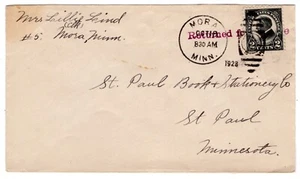 Mrs Lillie Lind
#5 Mora, Minn.
MORA
8:30 AM
MINN.
1928
Returned
2 CENTS 2
St. Paul Book & Stationery Co
St Paul
Minnesota.